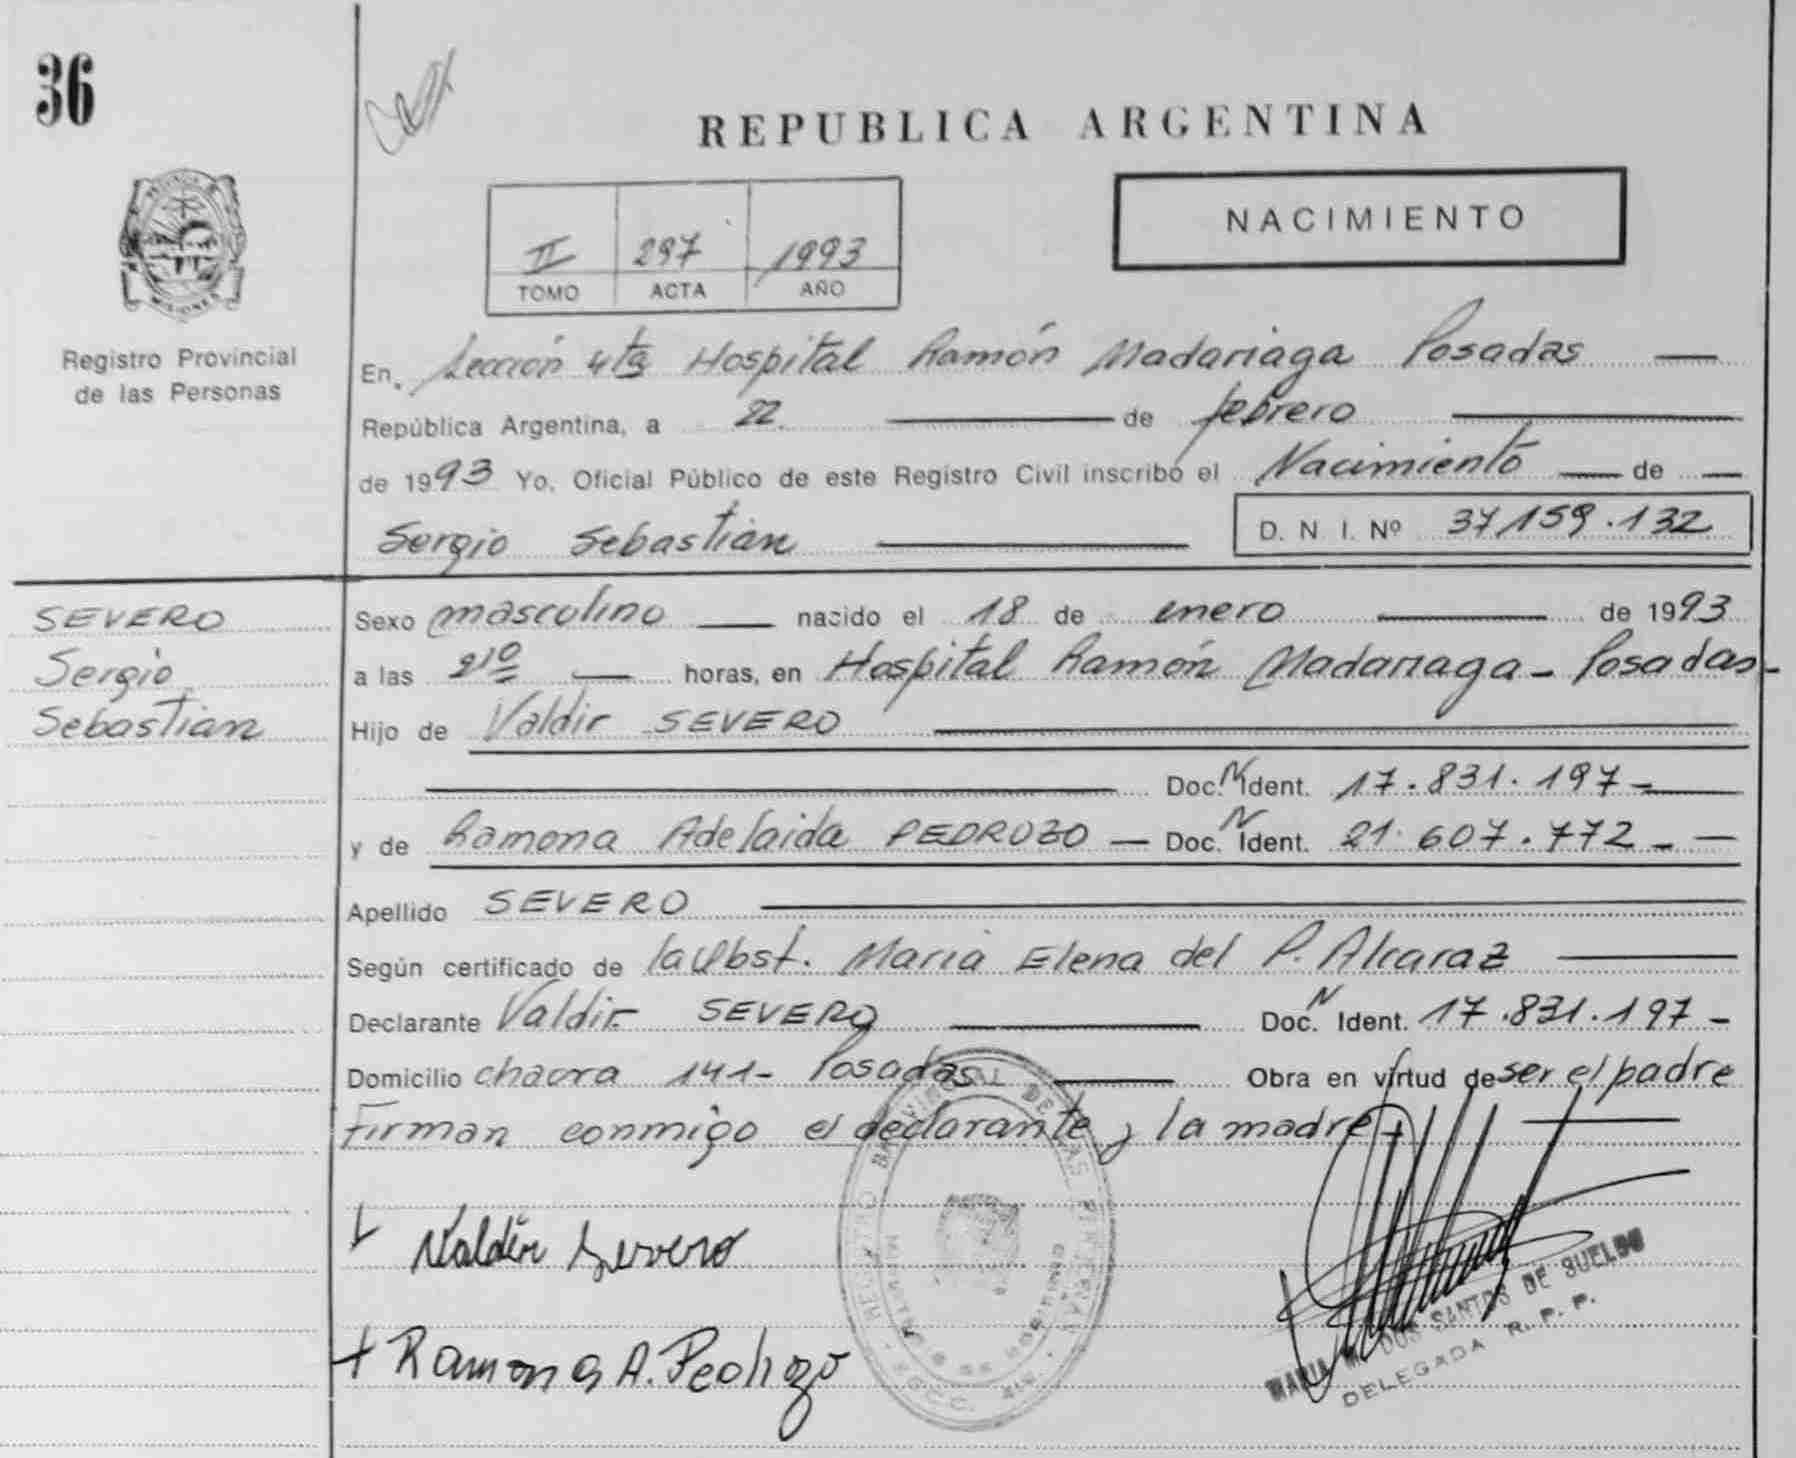 36
REPUBLICA ARGENTINA
NACIMIENTO
II 297 1993
TOMO ACTA AÑO
Registro Provincial
de las Personas
En, Sección 4ta Hospital Ramón Madariaga Posadas —
República Argentina, a 22 — de febrero —
de 1993 Yo, Oficial Público de este Registro Civil inscribo el Nacimiento — de —
Sergio Sebastian — D. N. I. Nº 37.159.132
SEVERO
Sergio
Sebastian
Sexo masculino — nacido el 18 de enero — de 1993
a las 210 — horas, en Hospital Ramón Madariaga - Posadas -
Hijo de Valdir SEVERO —
— Doc. N Ident. 17.831.197 -
y de Ramona Adelaida PEDROZO — Doc. N Ident. 21.607.772 - —
Apellido SEVERO —
Según certificado de la Obst. Maria Elena del P. Alcaraz —
Declarante Valdir SEVERO — Doc. N Ident. 17.831.197 -
Domicilio chacra 141- Posadas — Obra en virtud de ser el padre
Firman conmigo el declarante y la madre. —
Valdir Severo
Ramona A. Pedrozo
REGISTRO PROVINCIAL DE LAS PERSONAS
MISIONES
DOS SANTOS DE SUELDO
DELEGADA R. P. P.